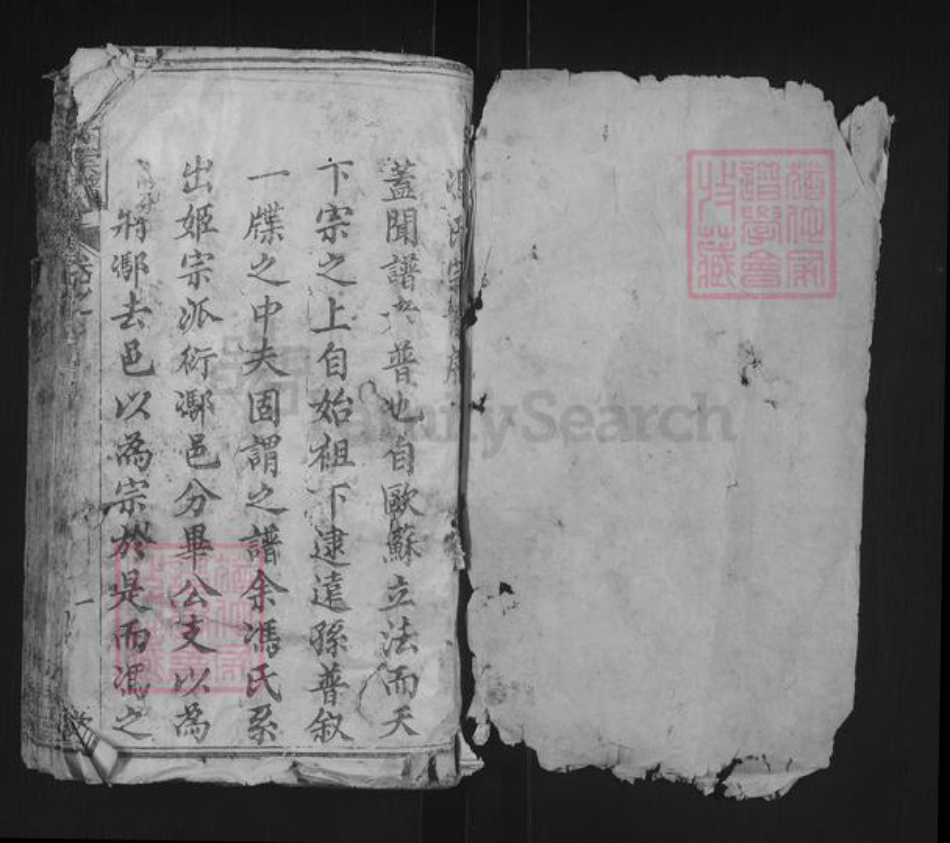 馮氏宗譜序
蓋聞譜者普也自歐蘇立法而天
下宗之上自始祖下逮遠孫普叙
一牒之中夫固謂之譜余馮氏系
出姬宗派衍鄢邑分畢公支以為
將鄢去邑以為宗於是而馮之
譜學會
收藏
FamilySearch